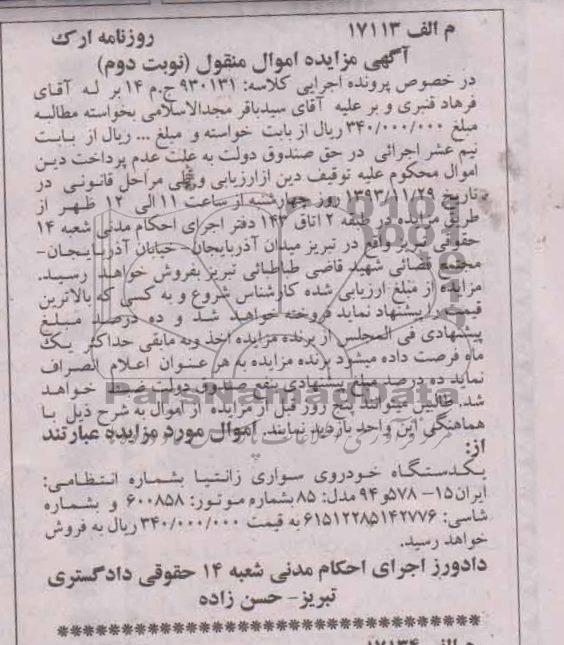 م الف ۱۷۱۱۳ روزنامه ارک
آگهی مزایده اموال منقول (نوبت دوم)
در خصوص پرونده اجرایی کلاسه: ۹۳۰۱۳۱ ج.م ۱۴ بر له آقای
فرهاد قنبری و بر علیه آقای سیدباقر مجدالاسلامی بخواسته مطالبه
مبلغ ۳۴۰/۰۰۰/۰۰۰ ریال از بابت خواسته و مبلغ ... ریال از بابت
نیم عشر اجرائی در حق صندوق دولت به علت عدم پرداخت دین
اموال محکوم علیه توقیف دین ازارزیابی و طی مراحل قانونی در
تاریخ ۱۳۹۳/۱۱/۲۹ روز چهارشنبه از ساعت ۱۱ الی ۱۲ ظهر از
طریق مزایده در طبقه ۲ اتاق ۱۴۳ دفتر اجرای احکام مدنی شعبه ۱۴
حقوقی تبریز واقع در تبریز میدان آذربایجان- خیابان آذربایجان-
مجتمع قضائی شهید قاضی طباطبائی تبریز بفروش خواهد رسید.
مزایده از مبلغ ارزیابی شده کارشناس شروع و به کسی که بالاترین
قیمت را پیشنهاد نماید فروخته خواهید شد و ده درصد مبلغ
پیشنهادی فی المجلس از برنده مزایده اخذ وبه مابقی حداکثر یک
ماه فرصت داده میشود برنده مزایده به هر عنوان اعلام انصراف
نماید ده درصد مبلغ پیشنهادی بنفع صندوق دولت ضبط خواهد
شد. طالبین میتوانند پنج روز قبل از مزایده از اموال به شرح ذیل با
هماهنگی این واحد بازدید نمایند. اموال مورد مزایده عبارتند
از:
یکدستگاه خودروی سواری زانتیا بشماره انتظامی:
ایران۱۵- ۵۷۸و۹۴ مدل: ۸۵ بشماره موتور: ۶۰۰۸۵۸ و بشماره
شاسی: ۶۱۵۱۲۲۸۵۱۴۲۷۷۶ به قیمت ۳۴۰/۰۰۰/۰۰۰ ریال به فروش
خواهد رسید.
دادورز اجرای احکام مدنی شعبه ۱۴ حقوقی دادگستری
تبریز- حسن زاده
ParsNamadData